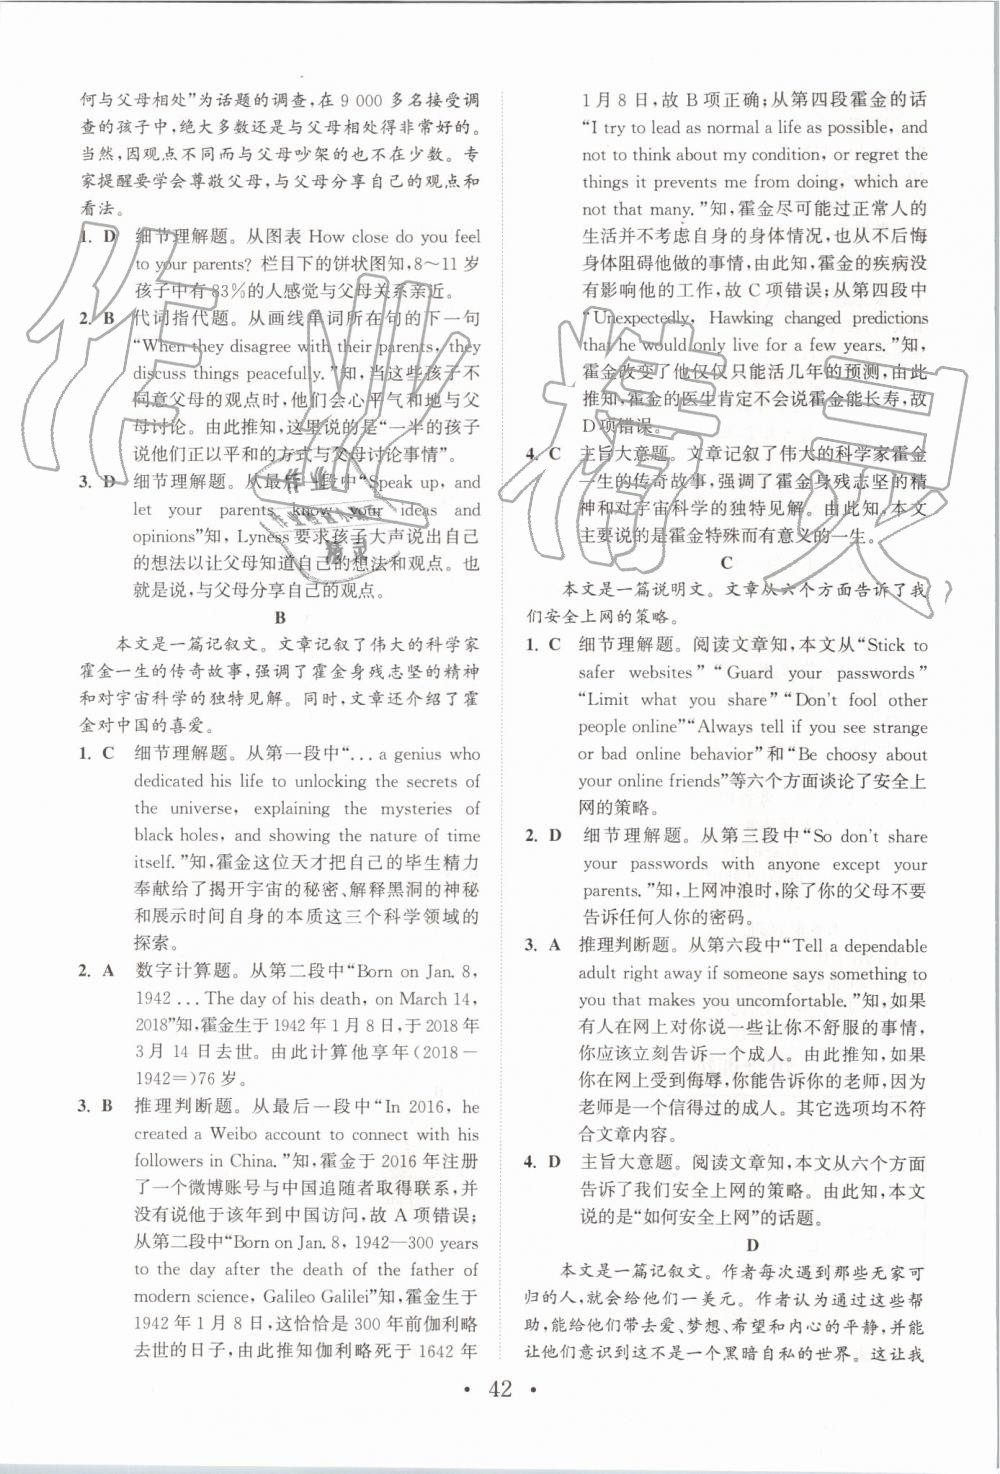 何与父母相处”为话题的调查，在 9 000 多名接受调
查的孩子中，绝大多数还是与父母相处得非常好的。
当然，因观点不同而与父母吵架的不在少数。专
家提醒要学会尊敬父母，与父母分享自己的观点和
看法。
1. D 细节理解题。从图表 How close do you feel
to your parents? 栏目下的饼状图知，8～11 岁
孩子中有 83%的人感觉与父母关系亲近。
2. B 代词指代题。从画线单词所在句的下一句
“When they disagree with their parents, they
discuss things peacefully.”知，当这些孩子不
同意父母的观点时，他们会心平气和地与父
母讨论。由此推知，这里说的是“一半的孩子
说他们正以平和的方式与父母讨论事情”。
3. D 细节理解题。从最后一段中“Speak up, and
let your parents know your ideas and
opinions”知，Lyness 要求孩子大声说出自己
的想法以让父母知道自己的想法和观点。也
就是说，与父母分享自己的观点。
B
本文是一篇记叙文。文章记叙了伟大的科学家
霍金一生的传奇故事，强调了霍金身残志坚的精神
和对宇宙科学的独特见解。同时，文章还介绍了霍
金对中国的喜爱。
1. C 细节理解题。从第一段中“... a genius who
dedicated his life to unlocking the secrets of
the universe, explaining the mysteries of
black holes, and showing the nature of time
itself.”知，霍金这位天才把自己的毕生精力
奉献给了揭开宇宙的秘密、解释黑洞的神秘
和展示时间自身的本质这三个科学领域的
探索。
2. A 数字计算题。从第二段中“Born on Jan. 8,
1942 ... The day of his death, on March 14,
2018”知，霍金生于 1942 年 1 月 8 日，于 2018 年
3 月 14 日去世。由此计算他享年(2018－
1942＝)76 岁。
3. B 推理判断题。从最后一段中“In 2016, he
created a Weibo account to connect with his
followers in China.”知，霍金于 2016 年注册
了一个微博账号与中国追随者取得联系，并
没有说他于该年到中国访问，故 A 项错误；
从第二段中“Born on Jan. 8, 1942—300 years
to the day after the death of the father of
modern science, Galileo Galilei”知，霍金生于
1942 年 1 月 8 日，这恰恰是 300 年前伽利略
去世的日子，由此推知伽利略死于 1642 年
1 月 8 日，故 B 项正确；从第四段霍金的话
“I try to lead as normal a life as possible, and
not to think about my condition, or regret the
things it prevents me from doing, which are
not that many.”知，霍金尽可能过正常人的
生活并不考虑自身的身体情况，也从不后悔
身体阻碍他做的事情，由此知，霍金的疾病没
有影响他的工作，故 C 项错误；从第四段中
“Unexpectedly, Hawking changed predictions
that he would only live for a few years.”知，
霍金改变了他仅仅只能活几年的预测，由此
推知，霍金的医生肯定不会说霍金能长寿，故
D 项错误。
4. C 主旨大意题。文章记叙了伟大的科学家霍金
一生的传奇故事，强调了霍金身残志坚的精
神和对宇宙科学的独特见解。由此知，本文
主要说的是霍金特殊而有意义的一生。
C
本文是一篇说明文。文章从六个方面告诉了我
们安全上网的策略。
1. C 细节理解题。阅读文章知，本文从“Stick to
safer websites” “Guard your passwords”
“Limit what you share” “Don't fool other
people online”“Always tell if you see strange
or bad online behavior”和“Be choosy about
your online friends”等六个方面谈论了安全上
网的策略。
2. D 细节理解题。从第三段中“So don't share
your passwords with anyone except your
parents.”知，上网冲浪时，除了你的父母不要
告诉任何人你的密码。
3. A 推理判断题。从第六段中“Tell a dependable
adult right away if someone says something to
you that makes you uncomfortable.”知，如果
有人在网上对你说一些让你不舒服的事情，
你应该立刻告诉一个成人。由此推知，如果
你在网上受到侮辱，你能告诉你的老师，因为
老师是一个信得过的成人。其它选项均不符
合文章内容。
4. D 主旨大意题。阅读文章知，本文从六个方面
告诉了我们安全上网的策略。由此知，本文
说的是“如何安全上网”的话题。
D
本文是一篇记叙文。作者每次遇到那些无家可
归的人，就会给他们一美元。作者认为通过这些帮
助，能给他们带去爱、梦想、希望和内心的平静，并能
让他们意识到这不是一个黑暗自私的世界。这让我
· 42 ·
作业精灵